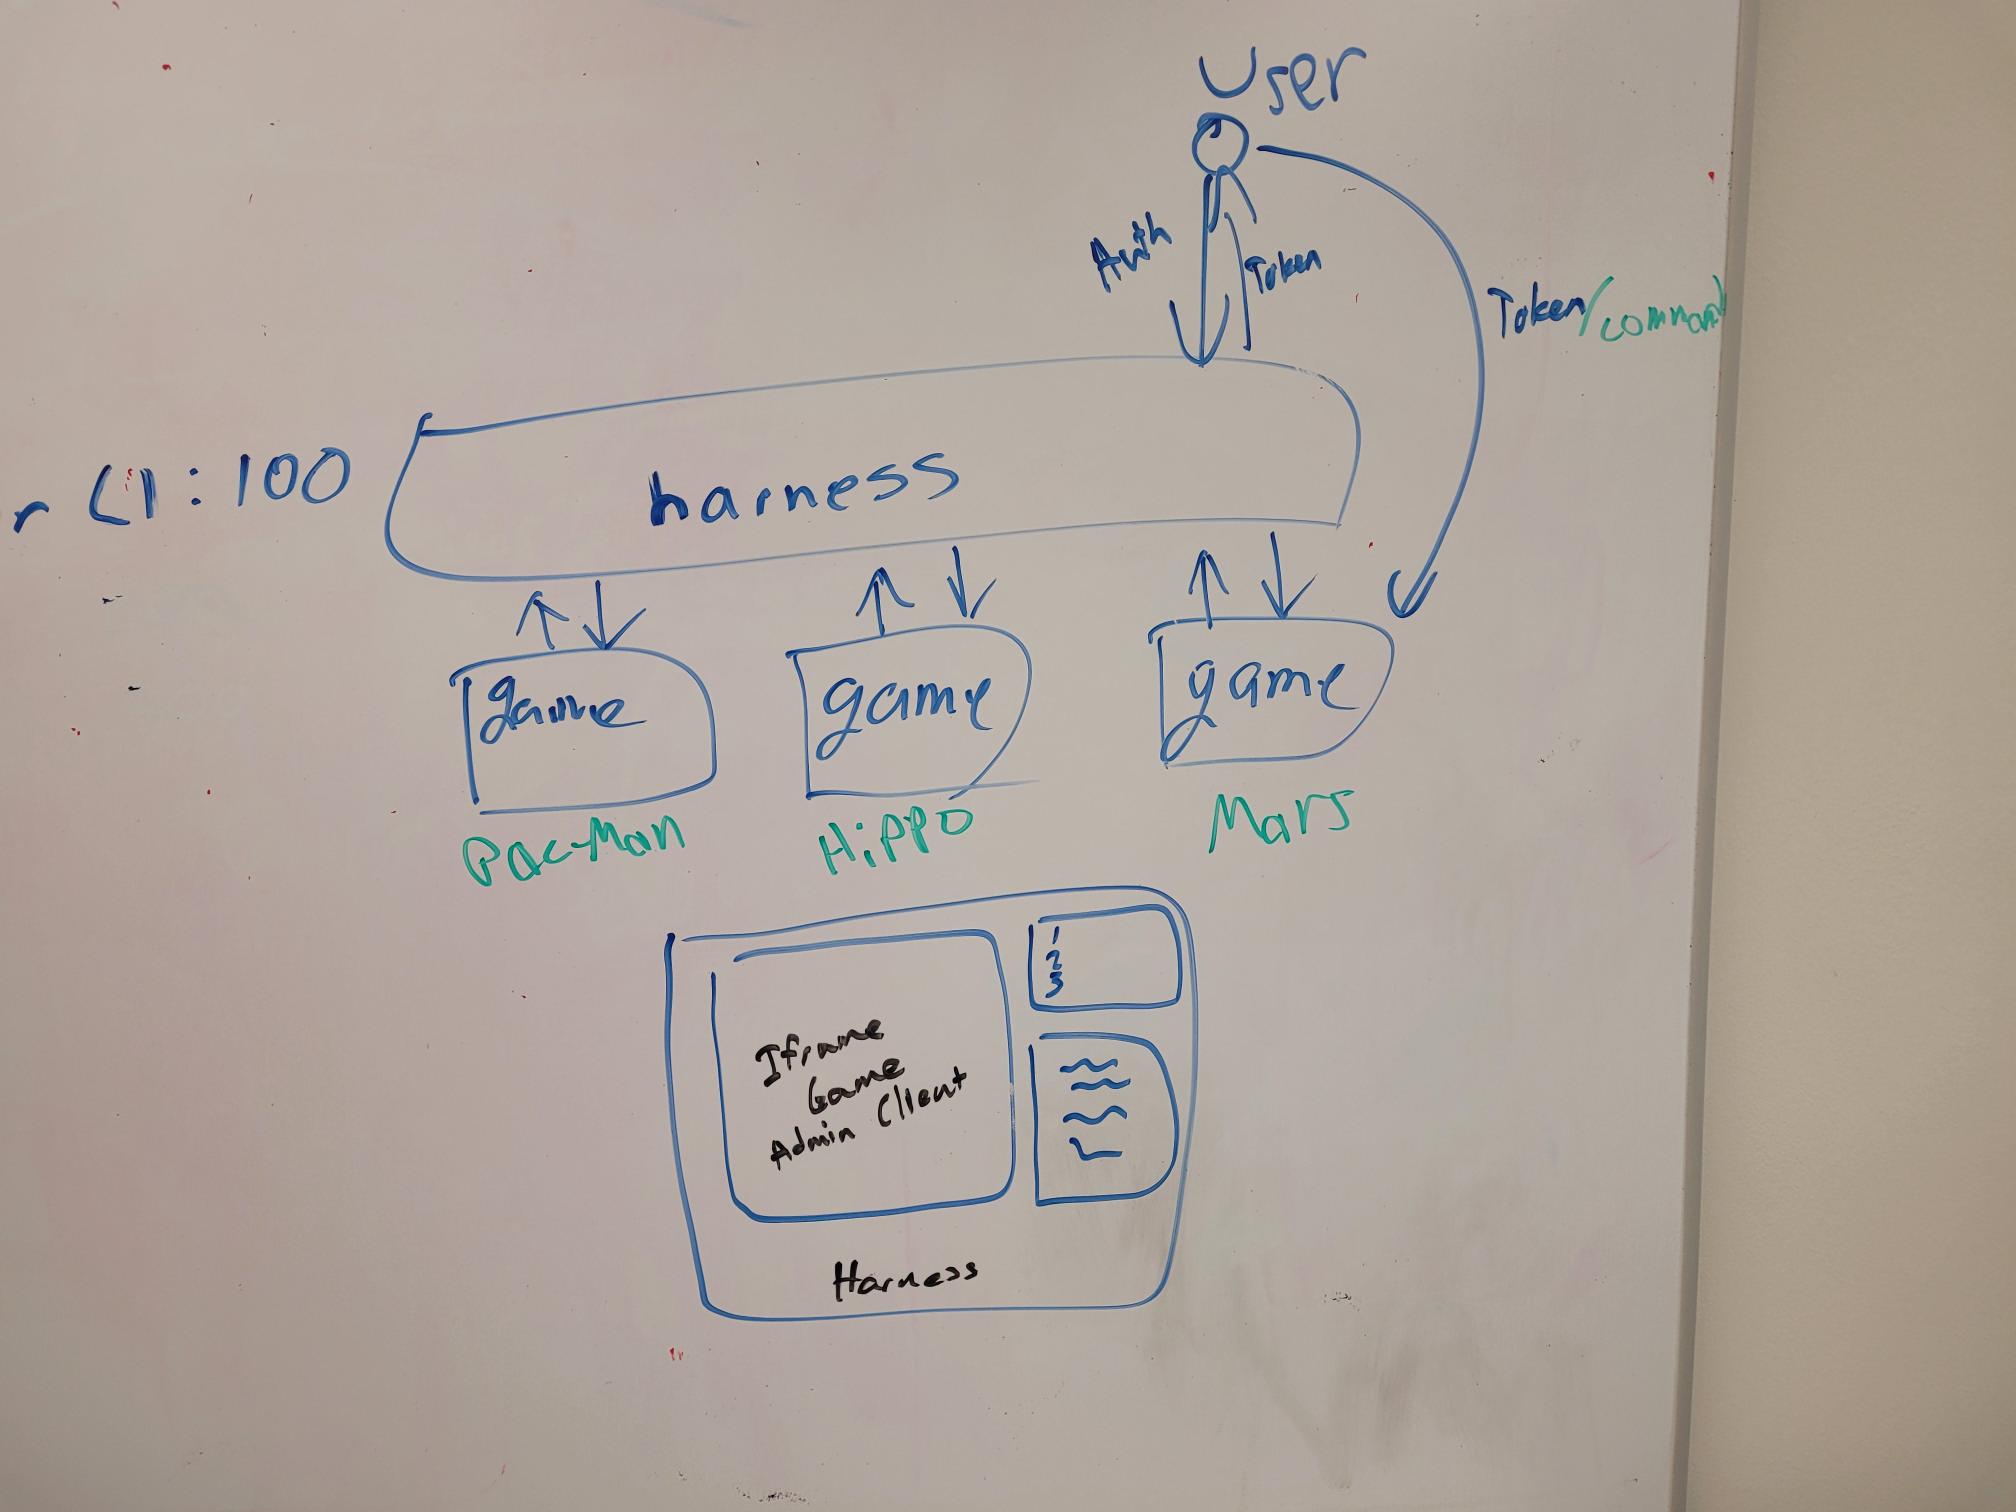 User
Auth
Token
Token/command
r C1:100
harness
game
game
game
Pac-Man
Hippo
Mars
1
2
3
Iframe
Game
Admin Client
Harness